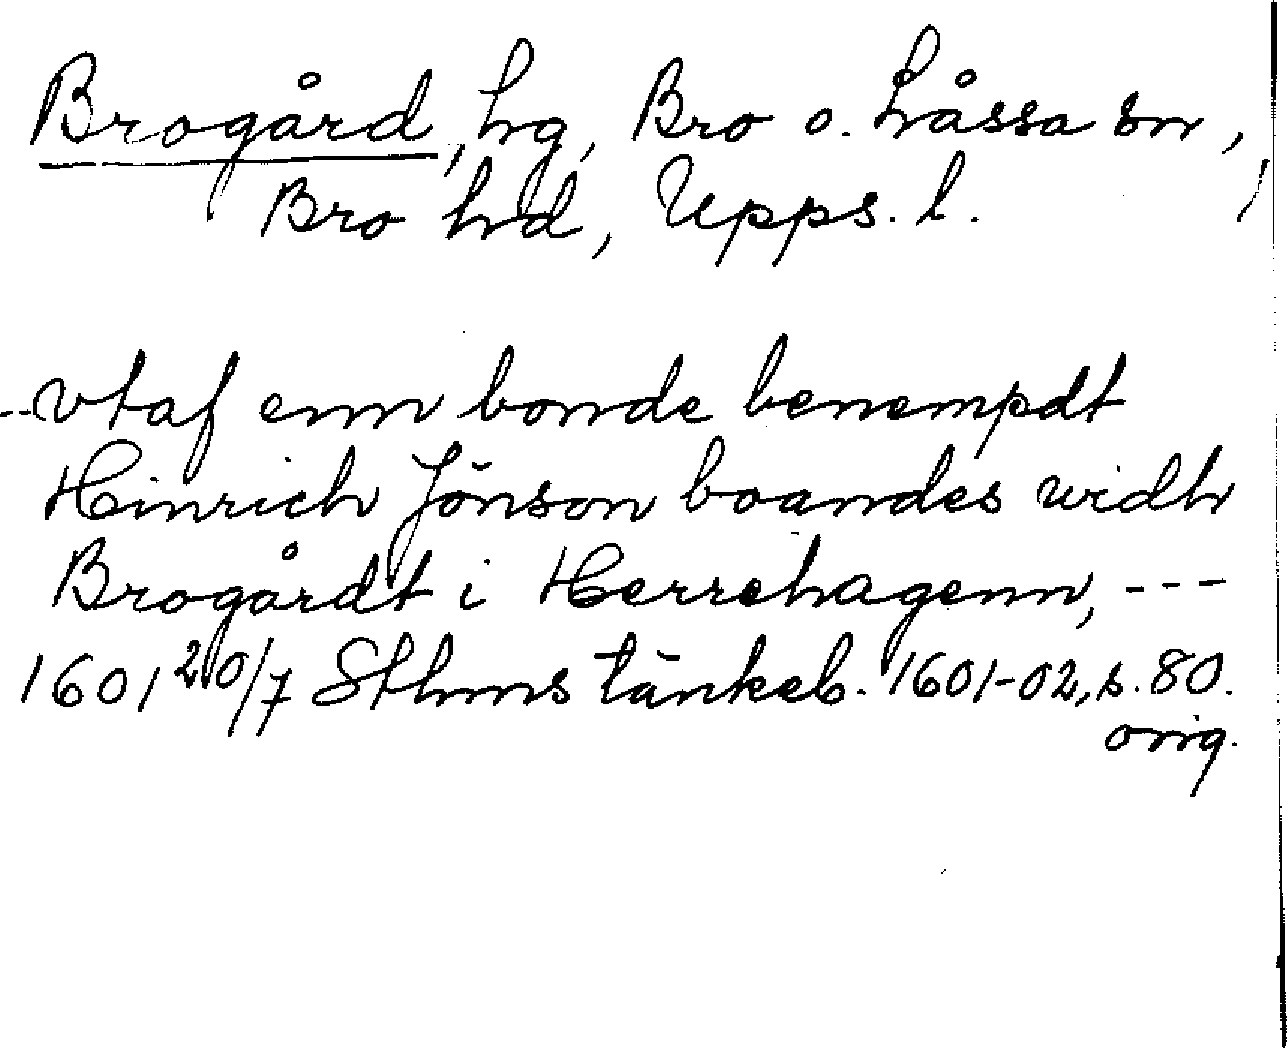 Brogård, hg, Bro o. Låssa sn,
Bro hd, Upps. l.
--vtaf enn bonde benempdt
Hinrich Jönson boandes widh
Brogårdt i Herrehagenn, ---
1601 20/7 Sthms tänkeb. 1601-02, s. 80.
orig.